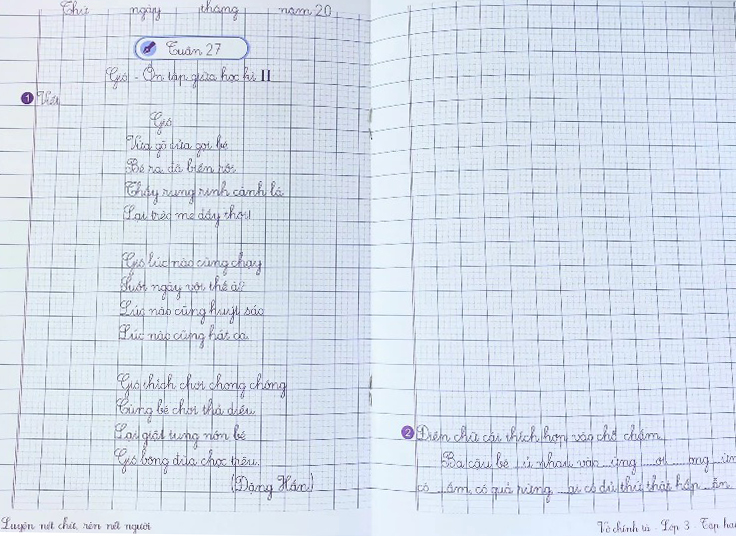 Thứ ngày tháng năm 20
Tuần 27
Gió - Ôn tập giữa học kì II
1 Viết
Gió
Vừa gõ cửa gọi bé
Bé ra đã biến rồi
Thấy rung rinh cành lá
Lại trèo me đấy thôi!
Gió lúc nào cũng chạy
Suốt ngày vội thế à?
Lúc nào cũng huýt sáo
Lúc nào cũng hát ca.
Gió thích chơi chong chóng
Cùng bé chơi thả diều
Lại giật tung nón bé
Gió bông đùa chọc trêu.
(Đặng Hấn)
2 Điền chữ cái thích hợp vào chỗ chấm
Ba cậu bé ...ủ nhau vào ...ừng ...ơi ...ong ...ừn
có ...ấm, có quả rừng ...ại có đủ thứ thật hấp ...ẫn
Luyện nét chữ, rèn nết người
Vở chính tả - Lớp 3 - Tập hai